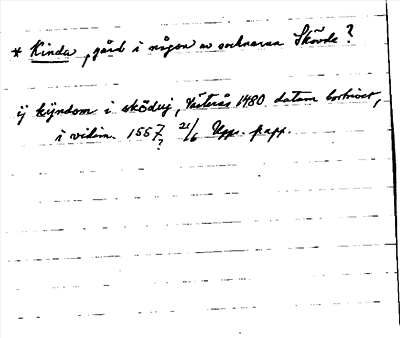 * Kinda, gård i någon av socknarna Skövde?
ij kijndom i sködwj, Västerås 1480 datum bortrivet,
i vidim. 1557? 21/6 Upp. papp.